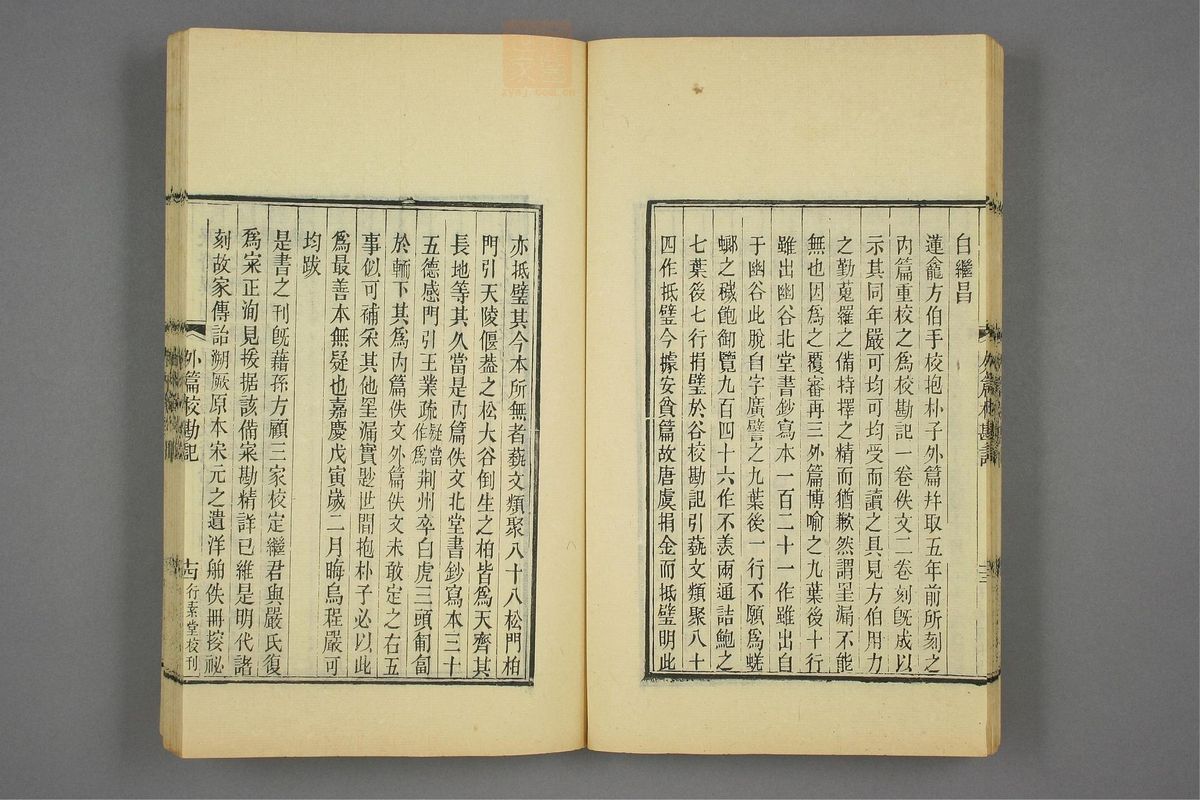 白繼昌
蓮龕方伯手校抱朴子外篇幷取五年前所刻之
內篇重校之爲校勘記一卷佚文二卷刻旣成以
示其同年嚴可均可均受而讀之具見方伯用力
之勤蒐羅之備持擇之精而猶歉然謂罣漏不能
無也因爲之覆審再三外篇博喻之九葉後十行
雖出幽谷北堂書鈔寫本一百二十一作雖出自
于幽谷此脫自字廣譬之九葉後一行不願爲蜣
螂之穢飽御覽九百四十六作不羨兩通詰鮑之
七葉後七行捐璧於谷校勘記引蓺文類聚八十
四作抵璧今據安貧篇故唐虞捐金而抵璧明此
外篇校勘記
亦抵璧其今本所無者蓺文類聚八十八松門柏
門引天陵偃葢之松大谷倒生之柏皆爲天齊其
長地等其久當是內篇佚文北堂書鈔寫本三十
五德感門引王業疏疑當作爲荆州卒白虎三頭匍匐
於輀下其爲內篇佚文外篇佚文未敢定之右五
事似可補采其他罣漏實尟世間抱朴子必以此
爲最善本無疑也嘉慶戊寅歲二月晦烏程嚴可
均跋
是書之刊旣藉孫方顧三家校定繼君與嚴氏復
爲寀正洵見援据該備寀勘精詳已維是明代諸
刻故家傳詒溯厥原本宋元之遺洋舶佚冊挍祕
外篇校勘記
行素堂校刊